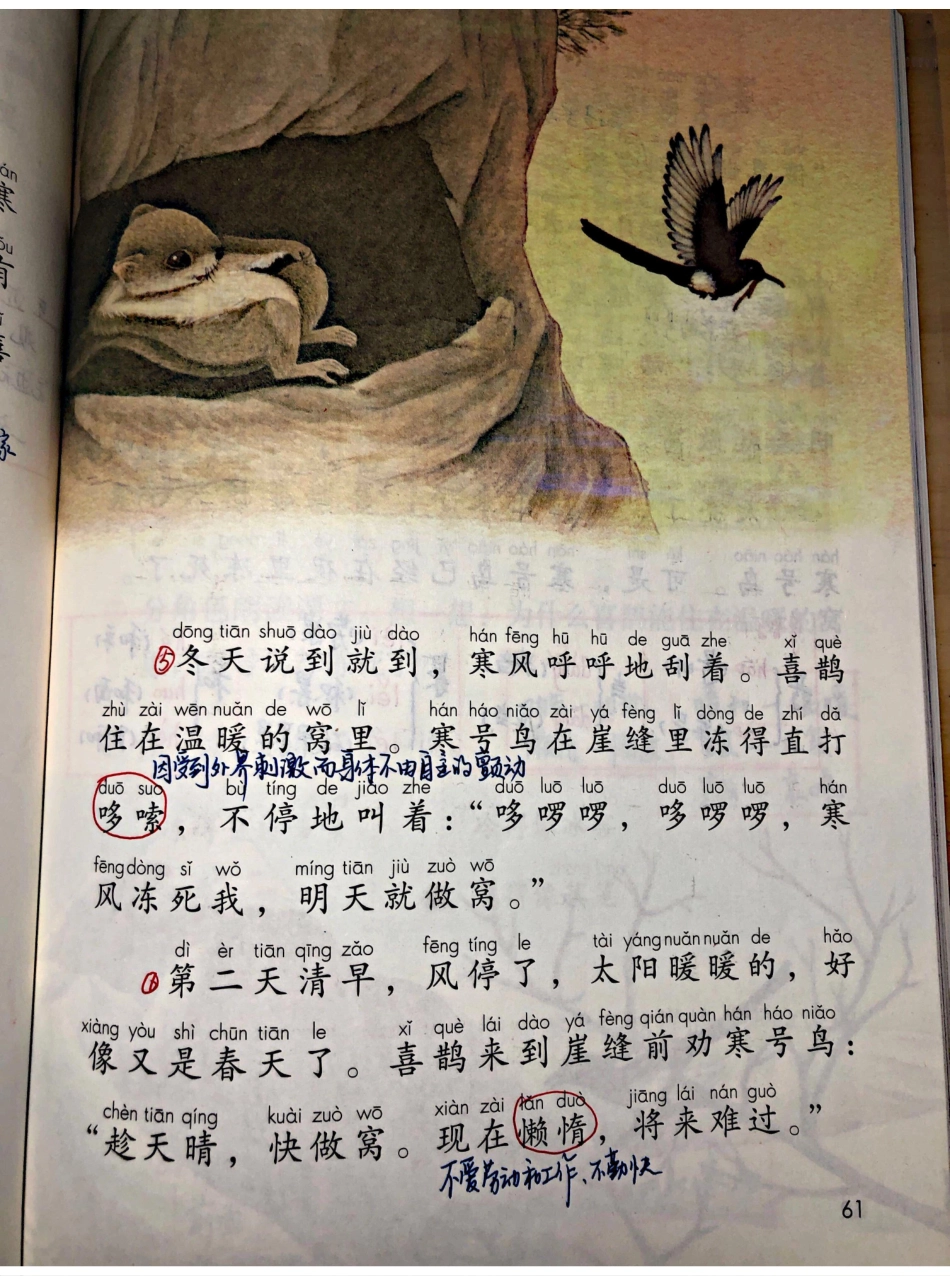 án
寒
ǒu
有
喜
家
dōng tiān shuō dào jiù dào hán fēng hū hū de guā zhe xǐ què
⑤冬天说到就到，寒风呼呼地刮着。喜鹊
zhù zài wēn nuǎn de wō lǐ hán háo niǎo zài yá fèng lǐ dòng de zhí dǎ
住在温暖的窝里。寒号鸟在崖缝里冻得直打
因受到外界刺激而身体不由自主的颤动
duō suo bù tíng de jiào zhe duō luō luō duō luō luō hán
哆嗦，不停地叫着：“哆啰啰，哆啰啰，寒
fēng dòng sǐ wǒ míng tiān jiù zuò wō
风冻死我，明天就做窝。”
dì èr tiān qīng zǎo fēng tíng le tài yáng nuǎn nuǎn de hǎo
⑥第二天清早，风停了，太阳暖暖的，好
xiàng yòu shì chūn tiān le xǐ què lái dào yá fèng qián quàn hán háo niǎo
像又是春天了。喜鹊来到崖缝前劝寒号鸟：
chèn tiān qíng kuài zuò wō xiàn zài lǎn duò jiāng lái nán guò
“趁天晴，快做窝。现在懒惰，将来难过。”
不爱劳动和工作、不勤快
61